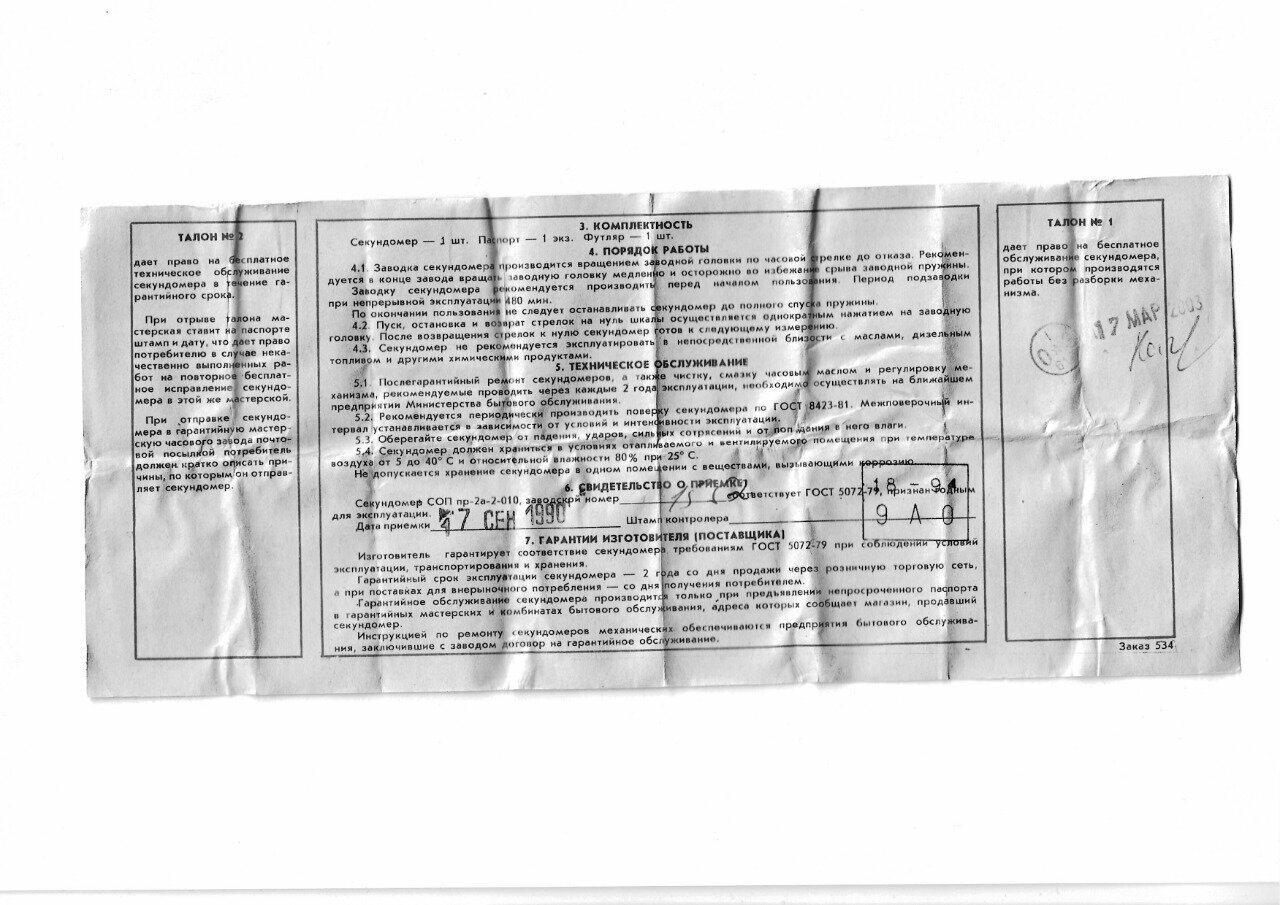 ТАЛОН № 2
дает право на бесплатное
техническое обслуживание
секундомера в течение га-
рантийного срока.
При отрыве талона ма-
стерская ставит на паспорте
штамп и дату, что дает право
потребителю в случае нека-
чественно выполненных ра-
бот на повторное бесплат-
ное исправление секундо-
мера в этой же мастерской.
При отправке секундо-
мера в гарантийную мастер-
скую часового завода почто-
вой посылкой потребитель
должен кратко описать при-
чины, по которым он отправ-
ляет секундомер.
3. КОМПЛЕКТНОСТЬ
Секундомер — 1 шт. Паспорт — 1 экз. Футляр — 1 шт.
4. ПОРЯДОК РАБОТЫ
4.1. Заводка секундомера производится вращением заводной головки по часовой стрелке до отказа. Рекомен-
дуется в конце завода вращать заводную головку медленно и осторожно во избежание срыва заводной пружины.
Заводку секундомера рекомендуется производить перед началом пользования. Период подзаводки
при непрерывной эксплуатации 480 мин.
По окончании пользования не следует останавливать секундомер до полного спуска пружины.
4.2. Пуск, остановка и возврат стрелок на нуль шкалы осуществляется однократным нажатием на заводную
головку. После возвращения стрелок к нулю секундомер готов к следующему измерению.
4.3. Секундомер не рекомендуется эксплуатировать в непосредственной близости с маслами, дизельным
топливом и другими химическими продуктами.
5. ТЕХНИЧЕСКОЕ ОБСЛУЖИВАНИЕ
5.1. Послегарантийный ремонт секундомеров, а также чистку, смазку часовым маслом и регулировку ме-
ханизма, рекомендуемые проводить через каждые 2 года эксплуатации, необходимо осуществлять на ближайшем
предприятии Министерства бытового обслуживания.
5.2. Рекомендуется периодически производить поверку секундомера по ГОСТ 8423-81. Межповерочный ин-
тервал устанавливается в зависимости от условий и интенсивности эксплуатации.
5.3. Оберегайте секундомер от падения, ударов, сильных сотрясений и от попадания в него влаги.
5.4. Секундомер должен храниться в условиях отапливаемого и вентилируемого помещения при температуре
воздуха от 5 до 40° С и относительной влажности 80% при 25° С.
Не допускается хранение секундомера в одном помещении с веществами, вызывающими коррозию.
6. СВИДЕТЕЛЬСТВО О ПРИЕМКЕ
Секундомер СОП пр-2а-2-010, заводской номер соответствует ГОСТ 5072-79, признан годным
для эксплуатации.
Дата приемки 7 СЕН 1990 Штамп контролера
18 - 91
9 А 0
7. ГАРАНТИИ ИЗГОТОВИТЕЛЯ (ПОСТАВЩИКА)
Изготовитель гарантирует соответствие секундомера требованиям ГОСТ 5072-79 при соблюдении условий
эксплуатации, транспортирования и хранения.
Гарантийный срок эксплуатации секундомера — 2 года со дня продажи через розничную торговую сеть,
а при поставках для внерыночного потребления — со дня получения потребителем.
Гарантийное обслуживание секундомера производится только при предъявлении непросроченного паспорта
в гарантийных мастерских и комбинатах бытового обслуживания, адреса которых сообщает магазин, продавший
секундомер.
Инструкцией по ремонту секундомеров механических обеспечиваются предприятия бытового обслужива-
ния, заключившие с заводом договор на гарантийное обслуживание.
ТАЛОН № 1
дает право на бесплатное
обслуживание секундомера,
при котором производятся
работы без разборки меха-
низма.
17 МАР 2003
Заказ 534